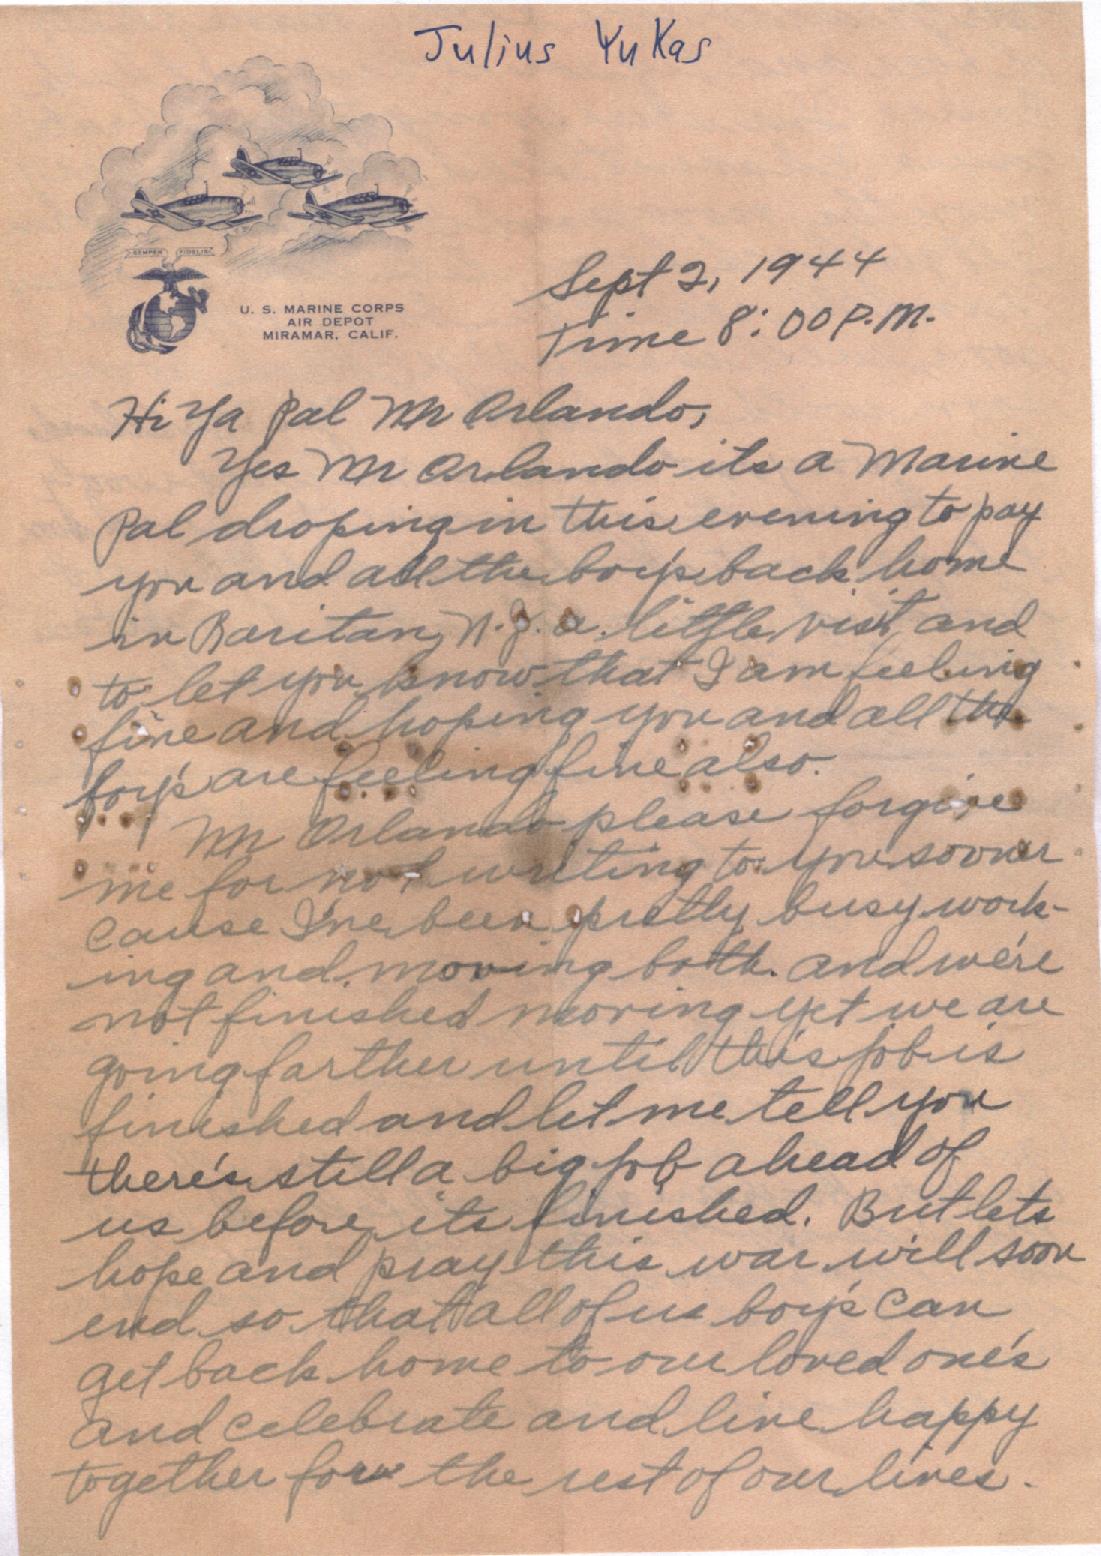 Julius Yukas
SEMPER FIDELIS
U. S. MARINE CORPS
AIR DEPOT
MIRAMAR, CALIF.
Sept 2, 1944
Time 8:00 P.M.
Hi Ya Pal Mr Orlando,
Yes Mr Orlando its a Marine
Pal droping in this evening to pay
you and all the boy's back home
in Raritan, N.J. a little visit and
to let you know that I am feeling
fine and hoping you and all the
boy's are feeling fine also.
Mr Orlando please forgive
me for not writing to you sooner
cause I've been pretty busy work-
ing and moving both. and we're
not finished moving yet we are
going farther until this job is
finished and let me tell you
there's still a big job ahead of
us before its finished. But lets
hope and pray this war will soon
end so that all of us boy's can
get back home to our loved one's
and celebrate and live happy
together for the rest of our lives.